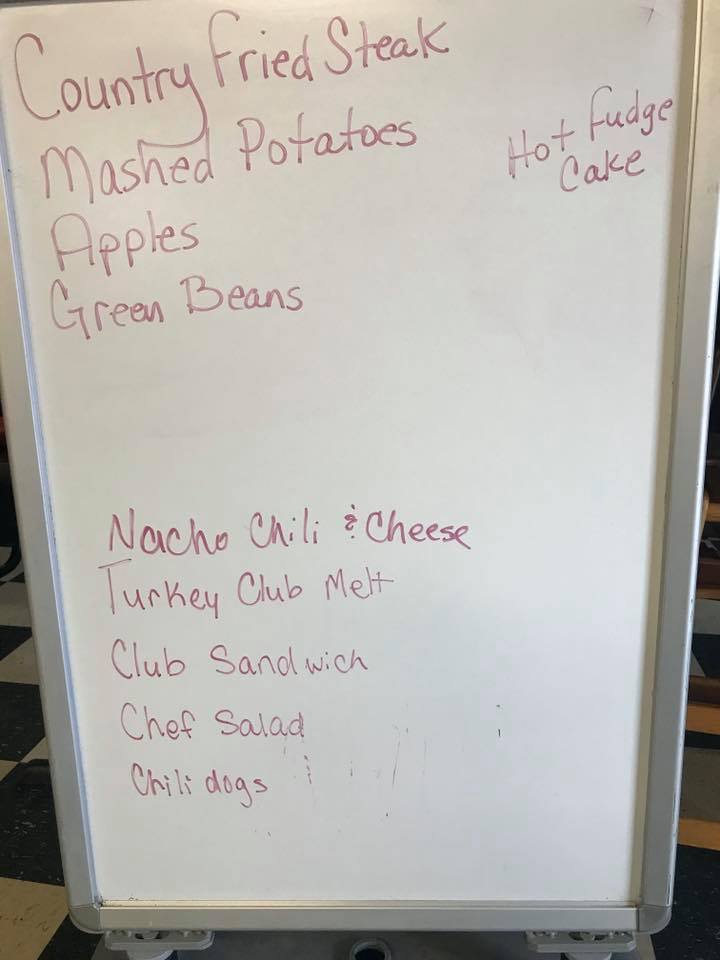 Country Fried Steak
Mashed Potatoes
Apples
Green Beans
Hot Fudge
Cake
Nacho Chili & Cheese
Turkey Club Melt
Club Sandwich
Chef Salad
Chili dogs